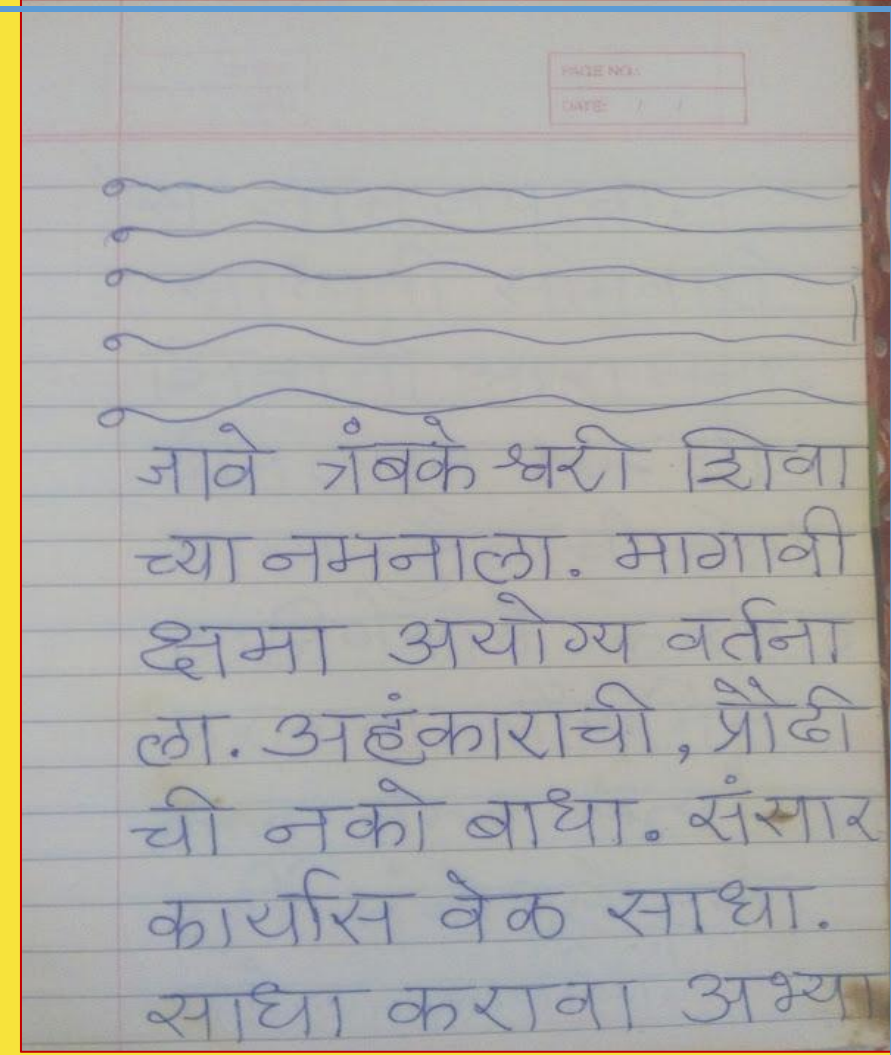 PAGE NO.:
DATE: / /
जावे त्रंबकेश्वरी शिवा
च्या नमनाला. मागावी
क्षमा अयोग्य वर्तना
ला. अहंकाराची, प्रौढी
ची नको बाधा. संसार
कार्यास वेळ साधा.
साधा करावा अभ्या